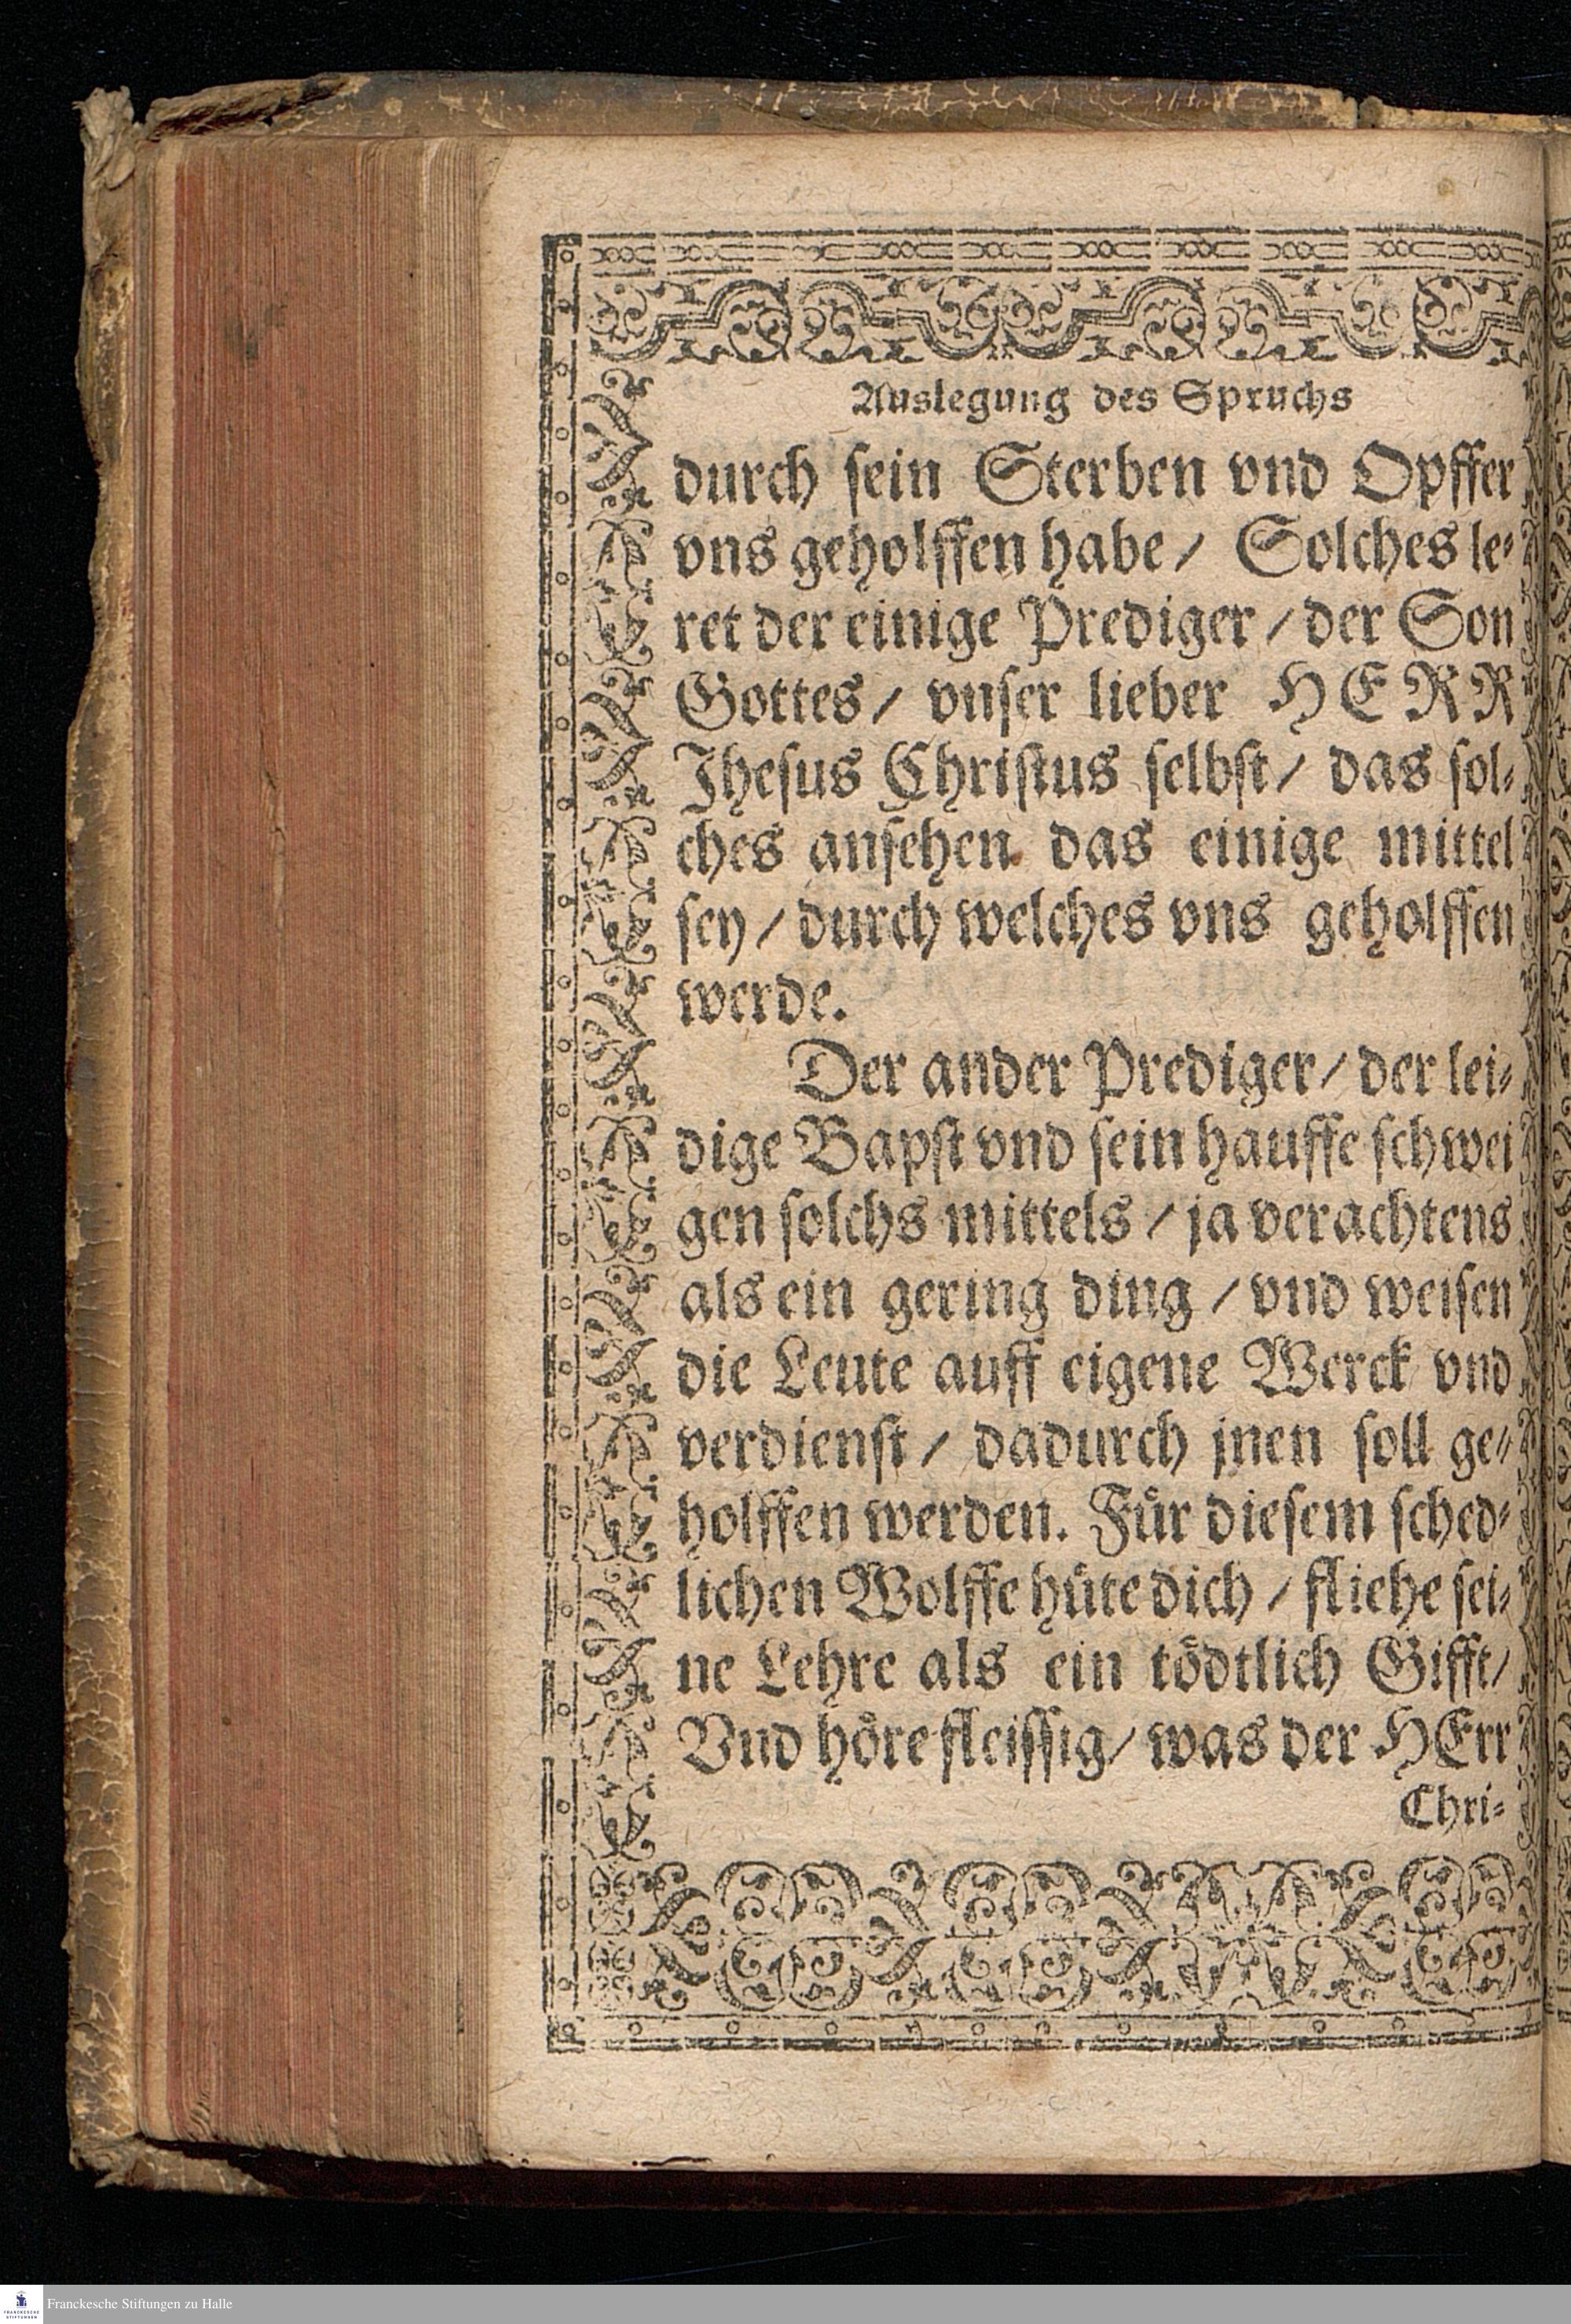 Auslegung des Spruchs
durch sein Sterben vnd Opffer
vns geholffen habe / Solches le⸗
ret der einige Prediger / der Son
Gottes / vnser lieber HERR
Jhesus Christus selbst / das sol⸗
ches ansehen das einige mittel
sey / durch welches vns geholffen
werde.
Der ander Prediger / der lei⸗
dige Bapst vnd sein hauffe schwei
gen solchs mittels / ja verachtens
als ein gering ding / vnd weisen
die Leute auff eigene Werck vnd
verdienst / dadurch jnen soll ge⸗
holffen werden. Fuͤr diesem sched⸗
lichen Wolffe huͤte dich / fliehe sei⸗
ne Lehre als ein toͤdtlich Gifft /
Vnd hoͤre fleissig / was der HErr
Chri⸗
FRANCKESCHE
STIFTUNGEN
Franckesche Stiftungen zu Halle